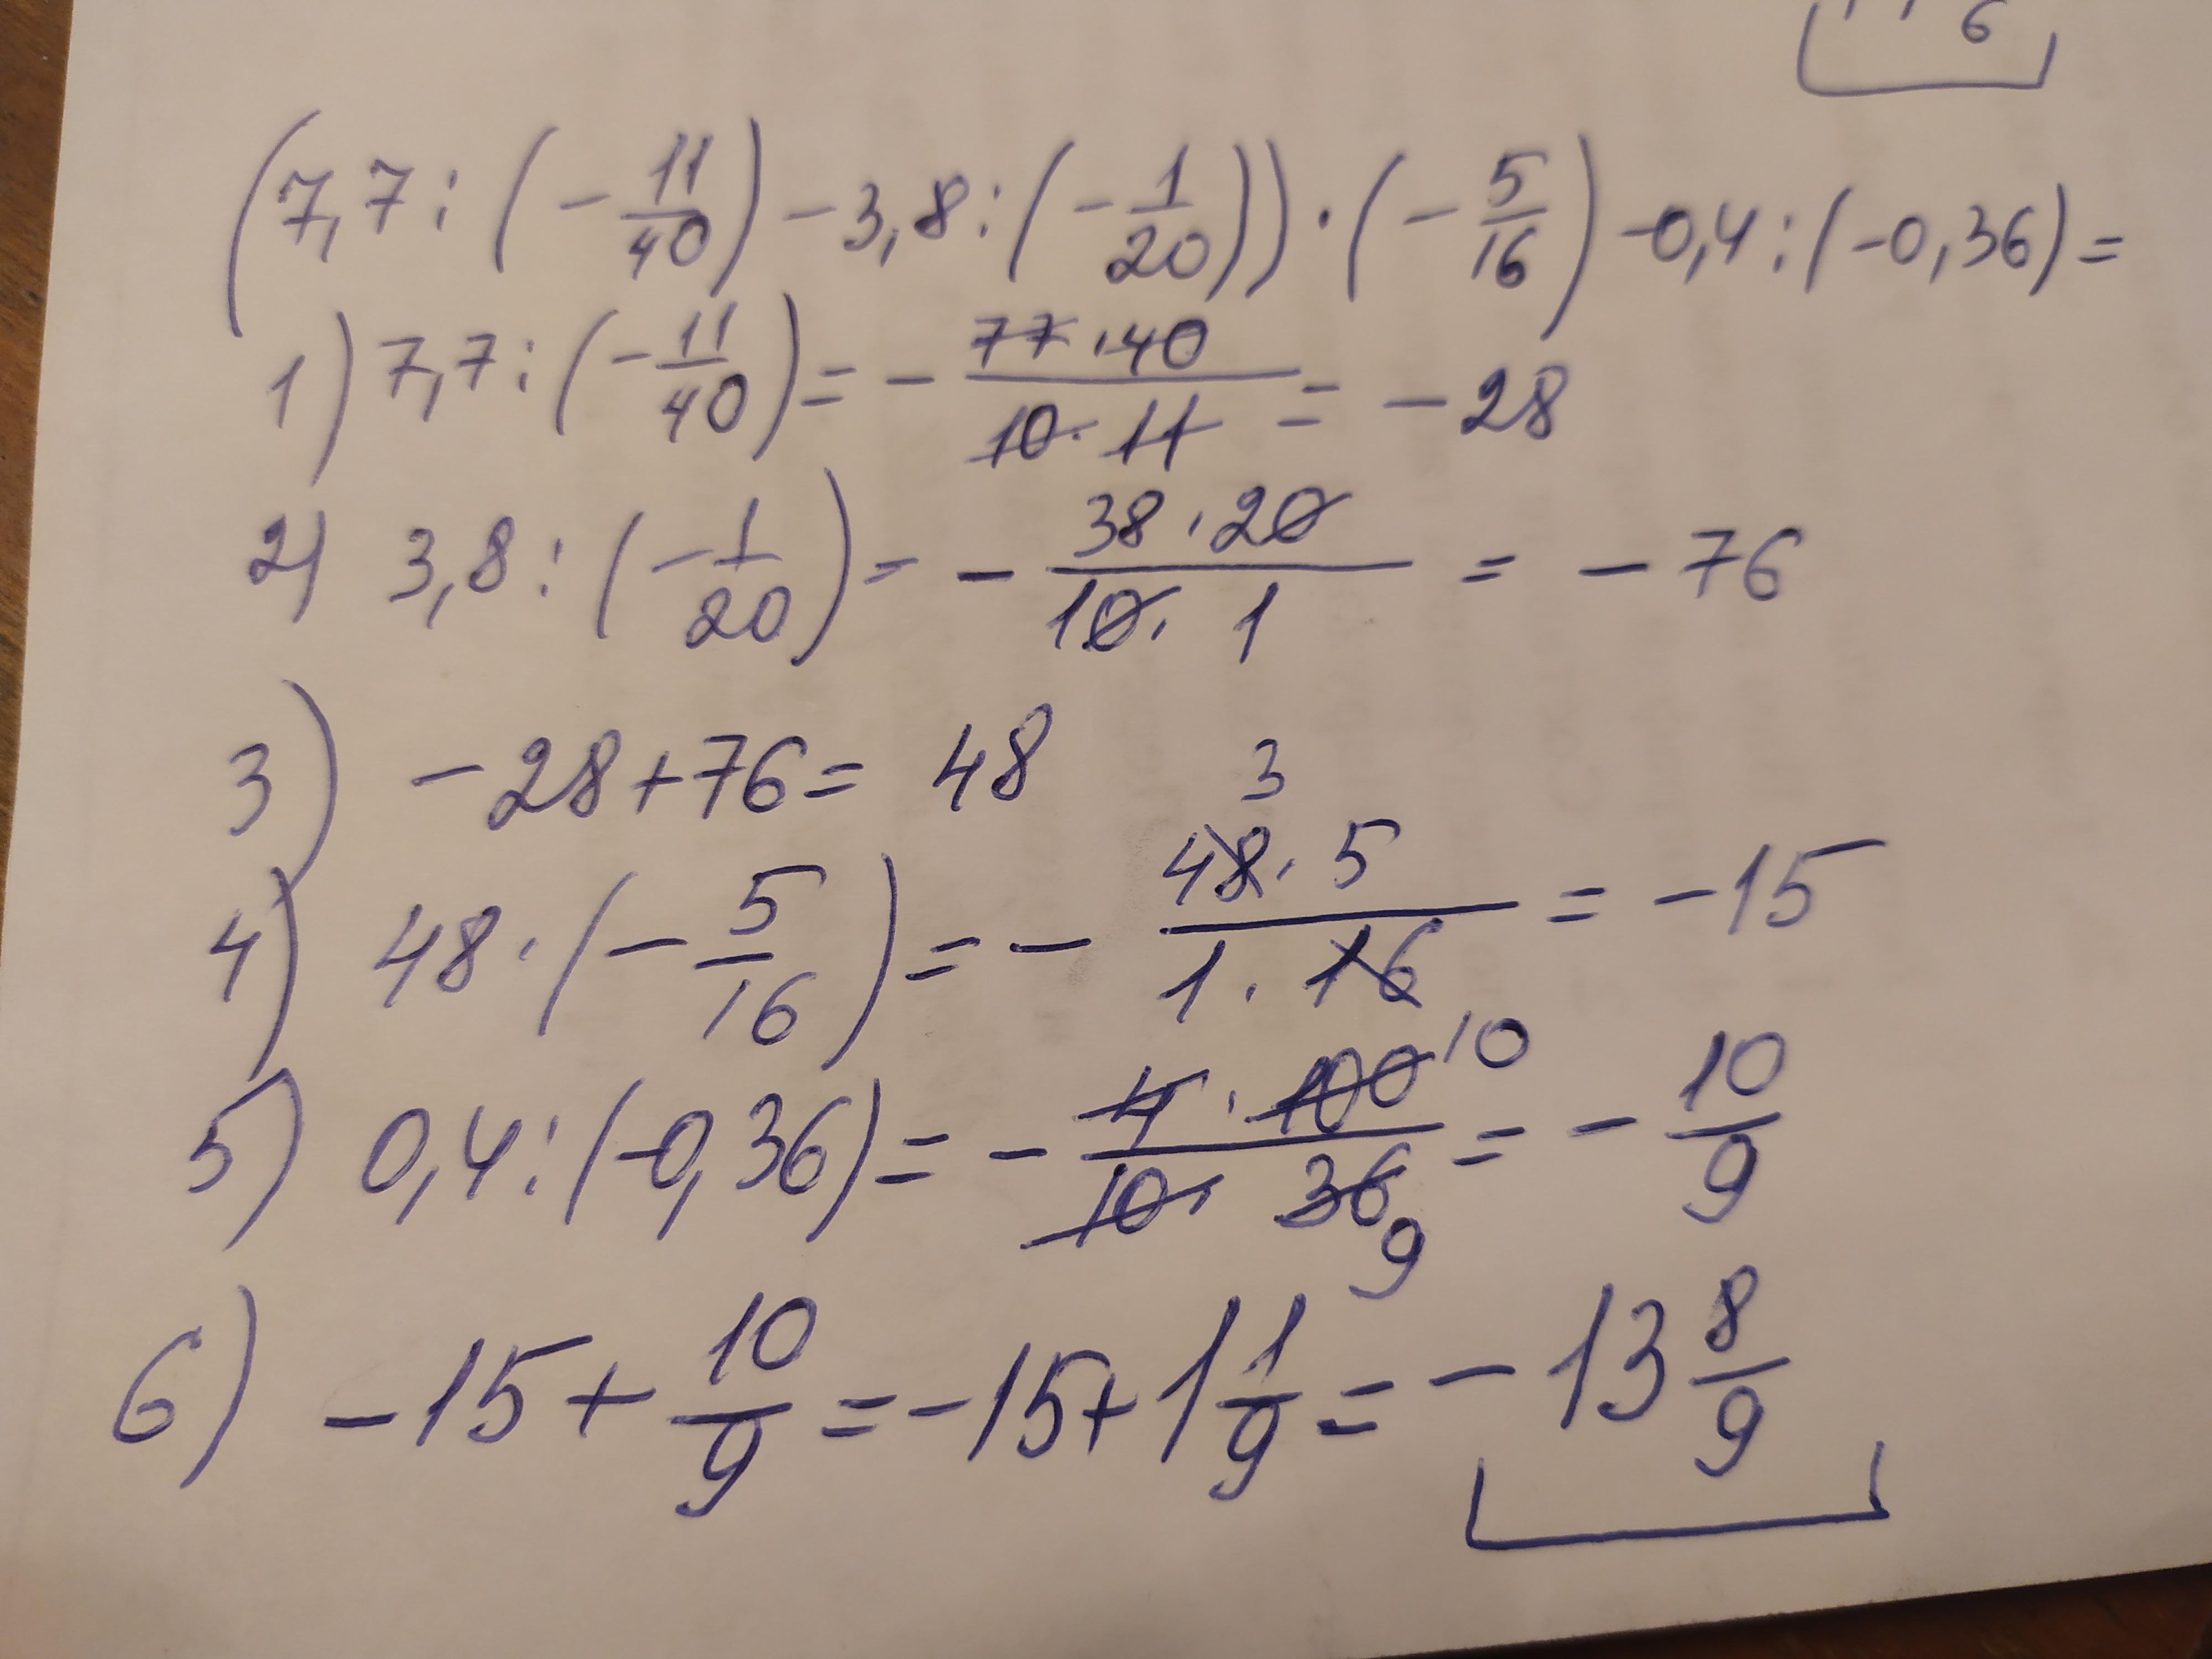 6
(7,7 : (-11/40) - 3,8 : (-1/20)) · (-5/16) - 0,4 : (-0,36) =
1) 7,7 : (-11/40) = - 77 · 40 / 10 · 11 = - 28
2) 3,8 : (-1/20) = - 38 · 20 / 10 · 1 = - 76
3) - 28 + 76 = 48
3
4) 48 · (-5/16) = - 48 · 5 / 1 · 16 = - 15
10
5) 0,4 : (-0,36) = - 4 · 100 / 10 · 36 = - 10/9
9
6) - 15 + 10/9 = - 15 + 1 1/9 = - 13 8/9